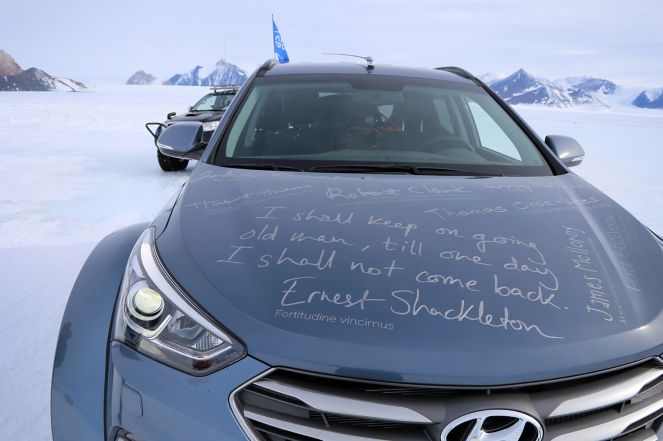 Robert Clark
Thomas
I shall keep on going
old man, till one day
I shall not come back.
Ernest Shackleton
Fortitudine vincimus
James McIlroy